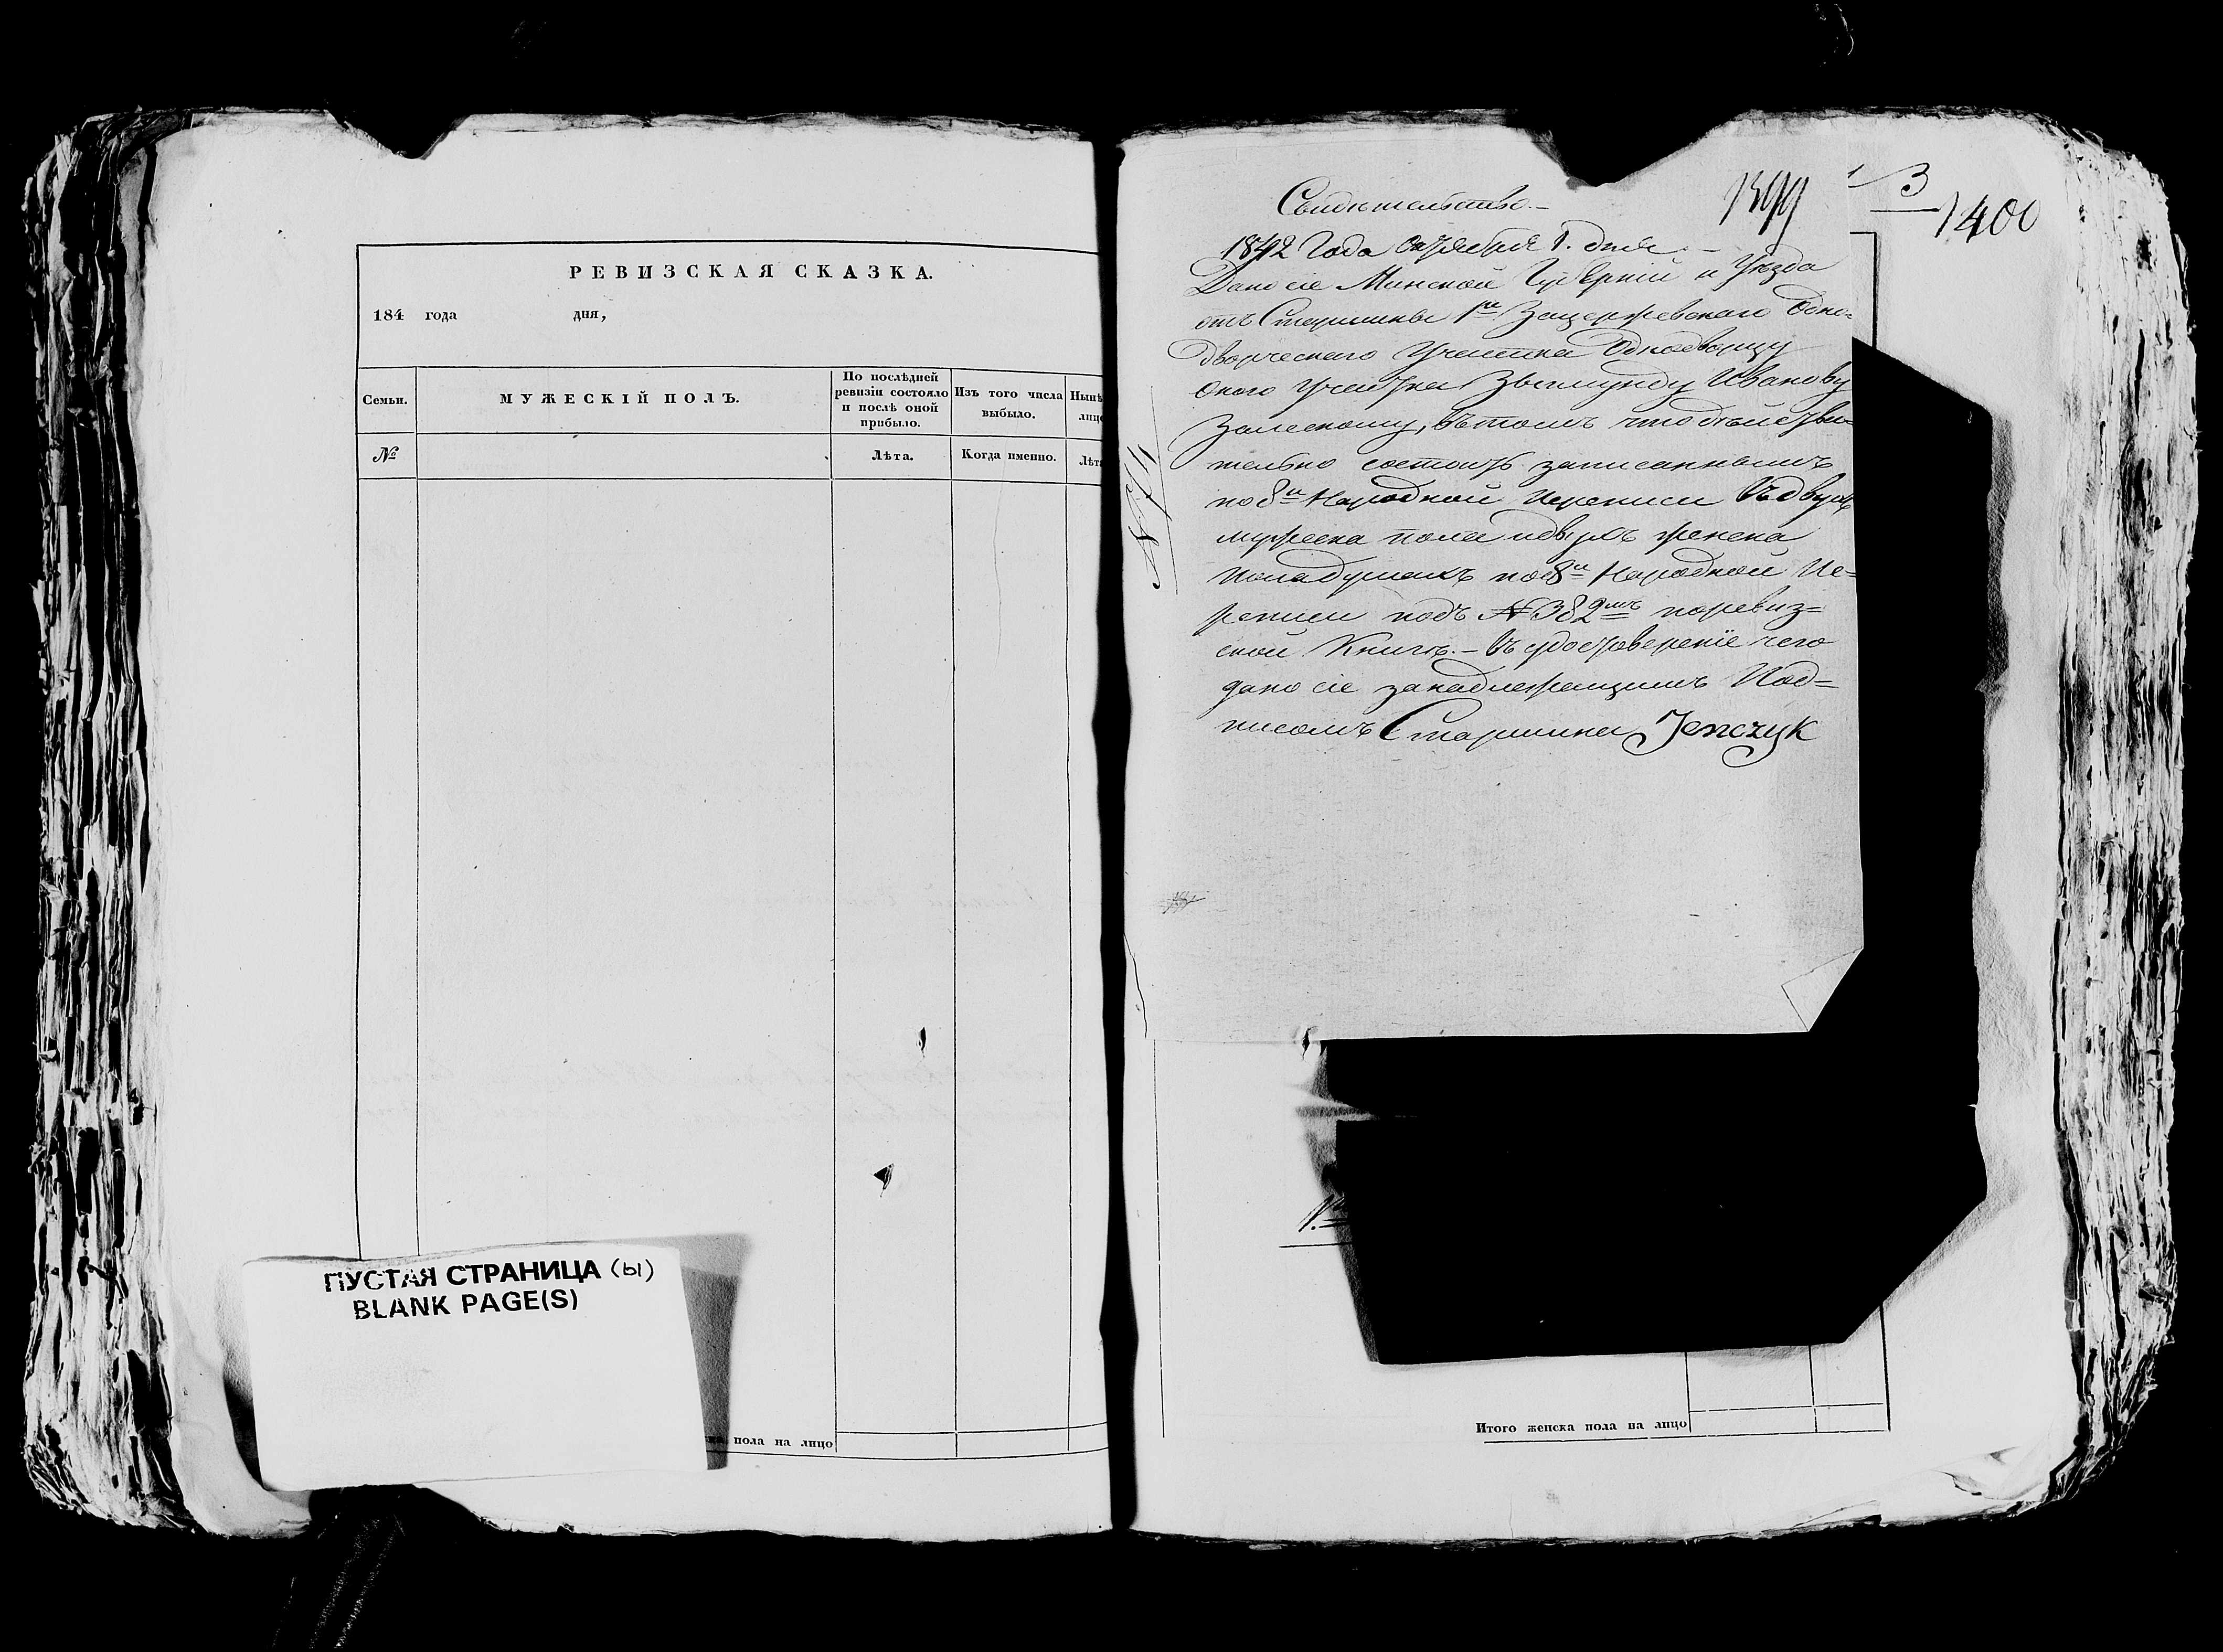 РЕВИЗСКАЯ СКАЗКА.
184 года дня,
Семьи.
МУЖЕСКІЙ ПОЛЪ.
По послѣдней
ревизіи состояло
и послѣ оной
прибыло.
Изъ того числа
выбыло.
Нынѣ
лицо
№
Лѣта.
Когда именно.
Лѣта
ПУСТАЯ СТРАНИЦА (ы)
BLANK PAGE(S)
пола на лицо
1399
3
1400
Свидѣтельство.-
1842 Года Октября 1. дня -
Дано сіе Минской Губерніи и Уѣзда
отъ Старшины 1го Одно-
дворческаго Участка Однодворцу
оного Участка Зыгмунду Иванову
Залескому, въ томъ что дѣйстви-
тельно состоитъ записаннымъ
по 8й Народной Переписи въ двухъ
мужеска пола и двухъ женска
пола душахъ по 8й Народной Пе=
реписи подъ № 382мъ по ревиз=
ской Книгѣ.- въ удостовереніе чего
дано сіе за надлежащимъ Под=
писомъ Старшина Jenczyk
1.
Итого женска пола на лицо